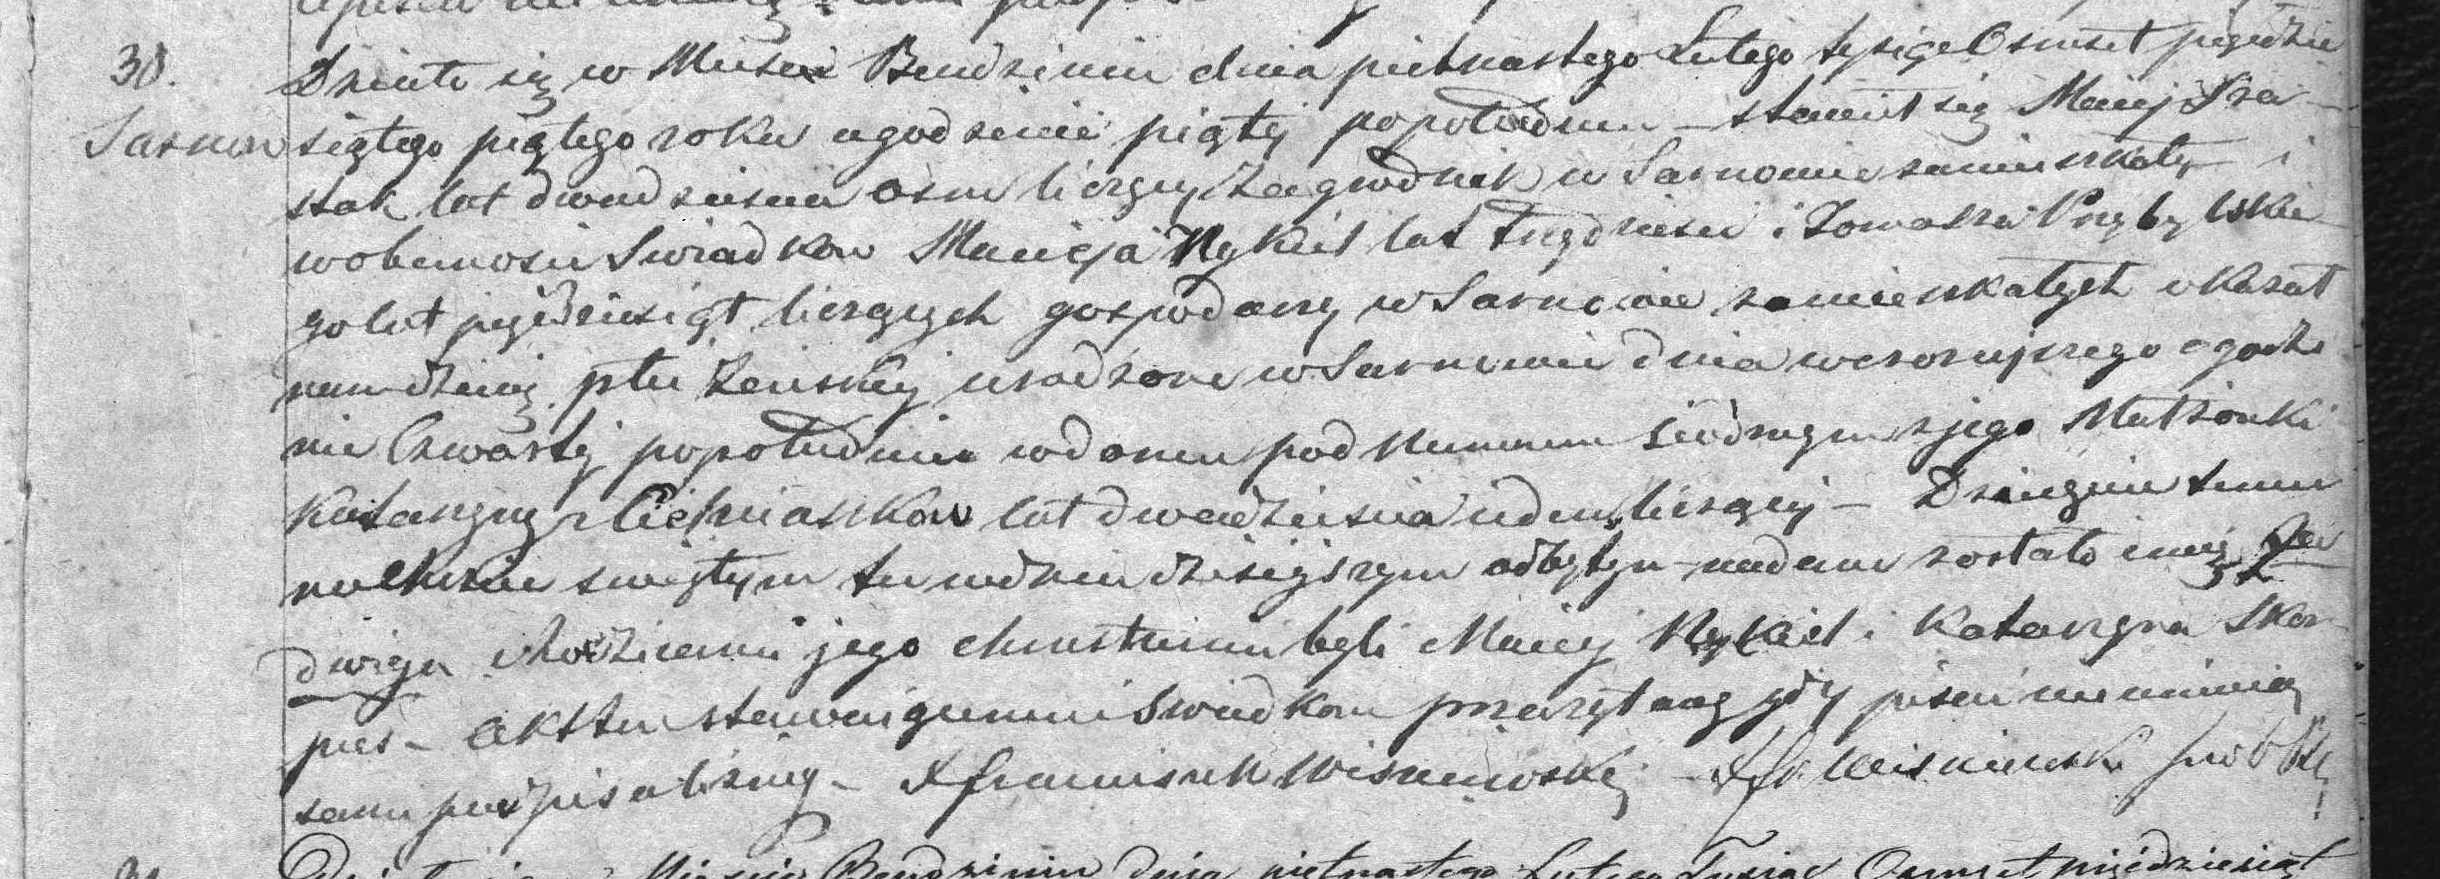 38. Działo się w Mieście Bendzinie dnia pietnastego Lutego tysiąc Osmset pięćdzie
Sarnow siątego piątego roku o godzinie piątej popołudniu – stawił się Maciej Sza-
stak lat dwadzieścia osm liczący Zagrodnik w Sarnowie zamieszkały i
w obecności Swiadków Macieja Rykiel lat trzydzieści i Tomasza Przybylskie
go lat pięćdziesiąt liczących gospodarzy w Sarnowie zamieszkałych okazał
nam dziecię płci żeńskiej urodzone w Sarnowie dnia wczorajszego o godzi
nie Czwartej popołudniu w domu pod Numerem siódmym z jego Małżonki
Katarzyny z lat dwadzieścia jeden liczącej – Dziecięciu temu
na chrzcie świętym tu w dniu dzisiejszym odbytym nadane zostało imie Ja
dwiga a Rodzicami jego chrzestnemi byli Maciej Rykiel i Katarzyna Skor
pies – Akt ten stawaiącemu i Swiadkom przeczytany gdy pisać nie umieią
sami podpisaliśmy – X Franciszek Wisniewski – X Fr Wisniewski
Działo się w Mieście Bendzinie dnia pietnastego Lutego Tysiąc Osmset pięćdziesiąt